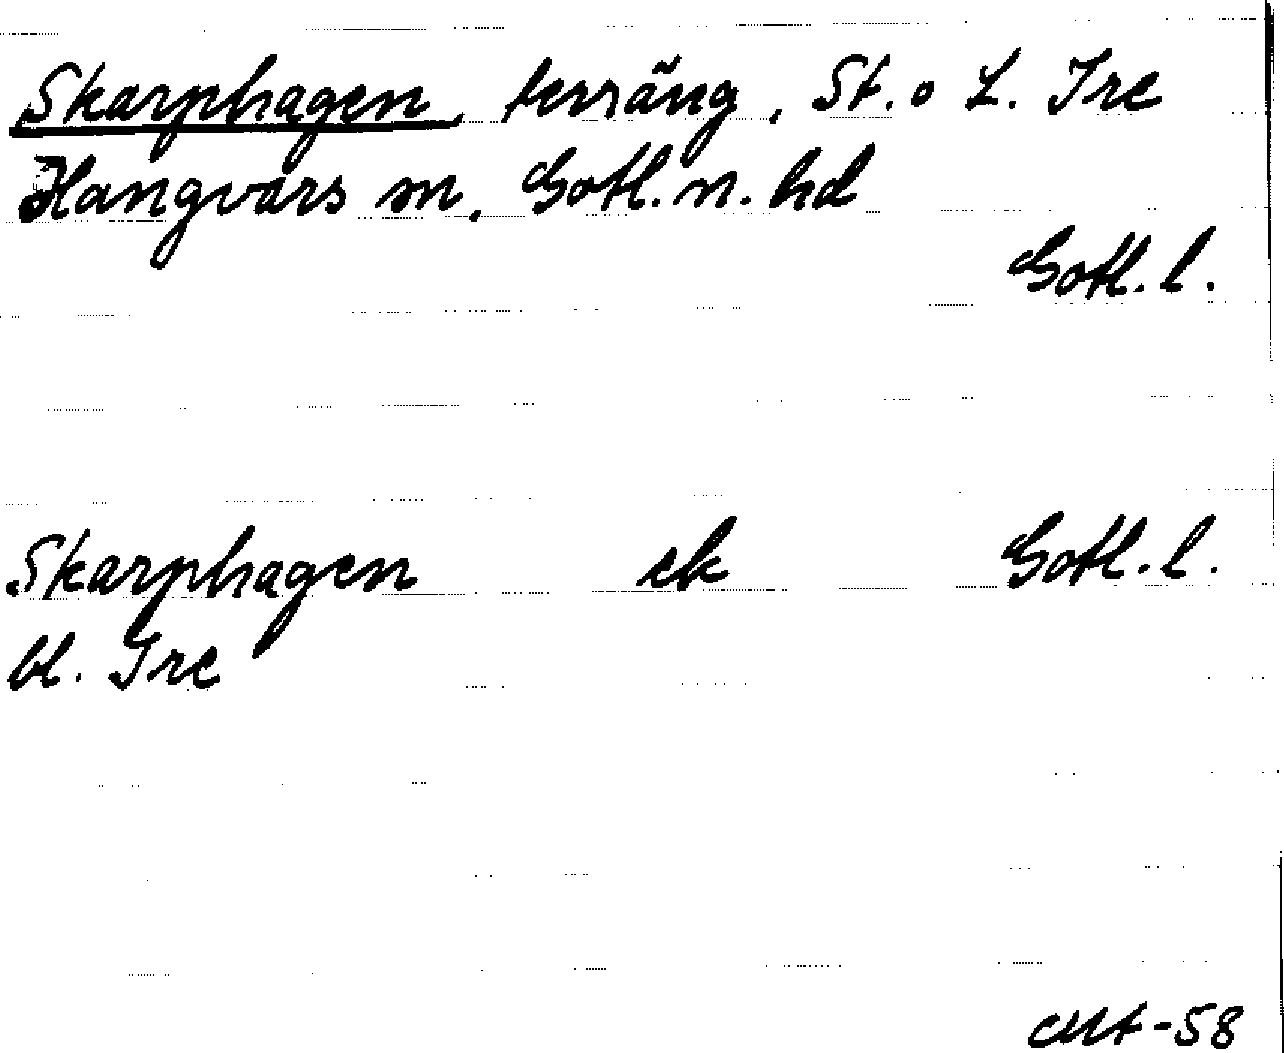 Skarphagen, terräng, St. o L. Ire
Hangvars sn, Gotl. n. hd
Gotl. l.
Skarphagen ek Gotl. l.
bl. Ire